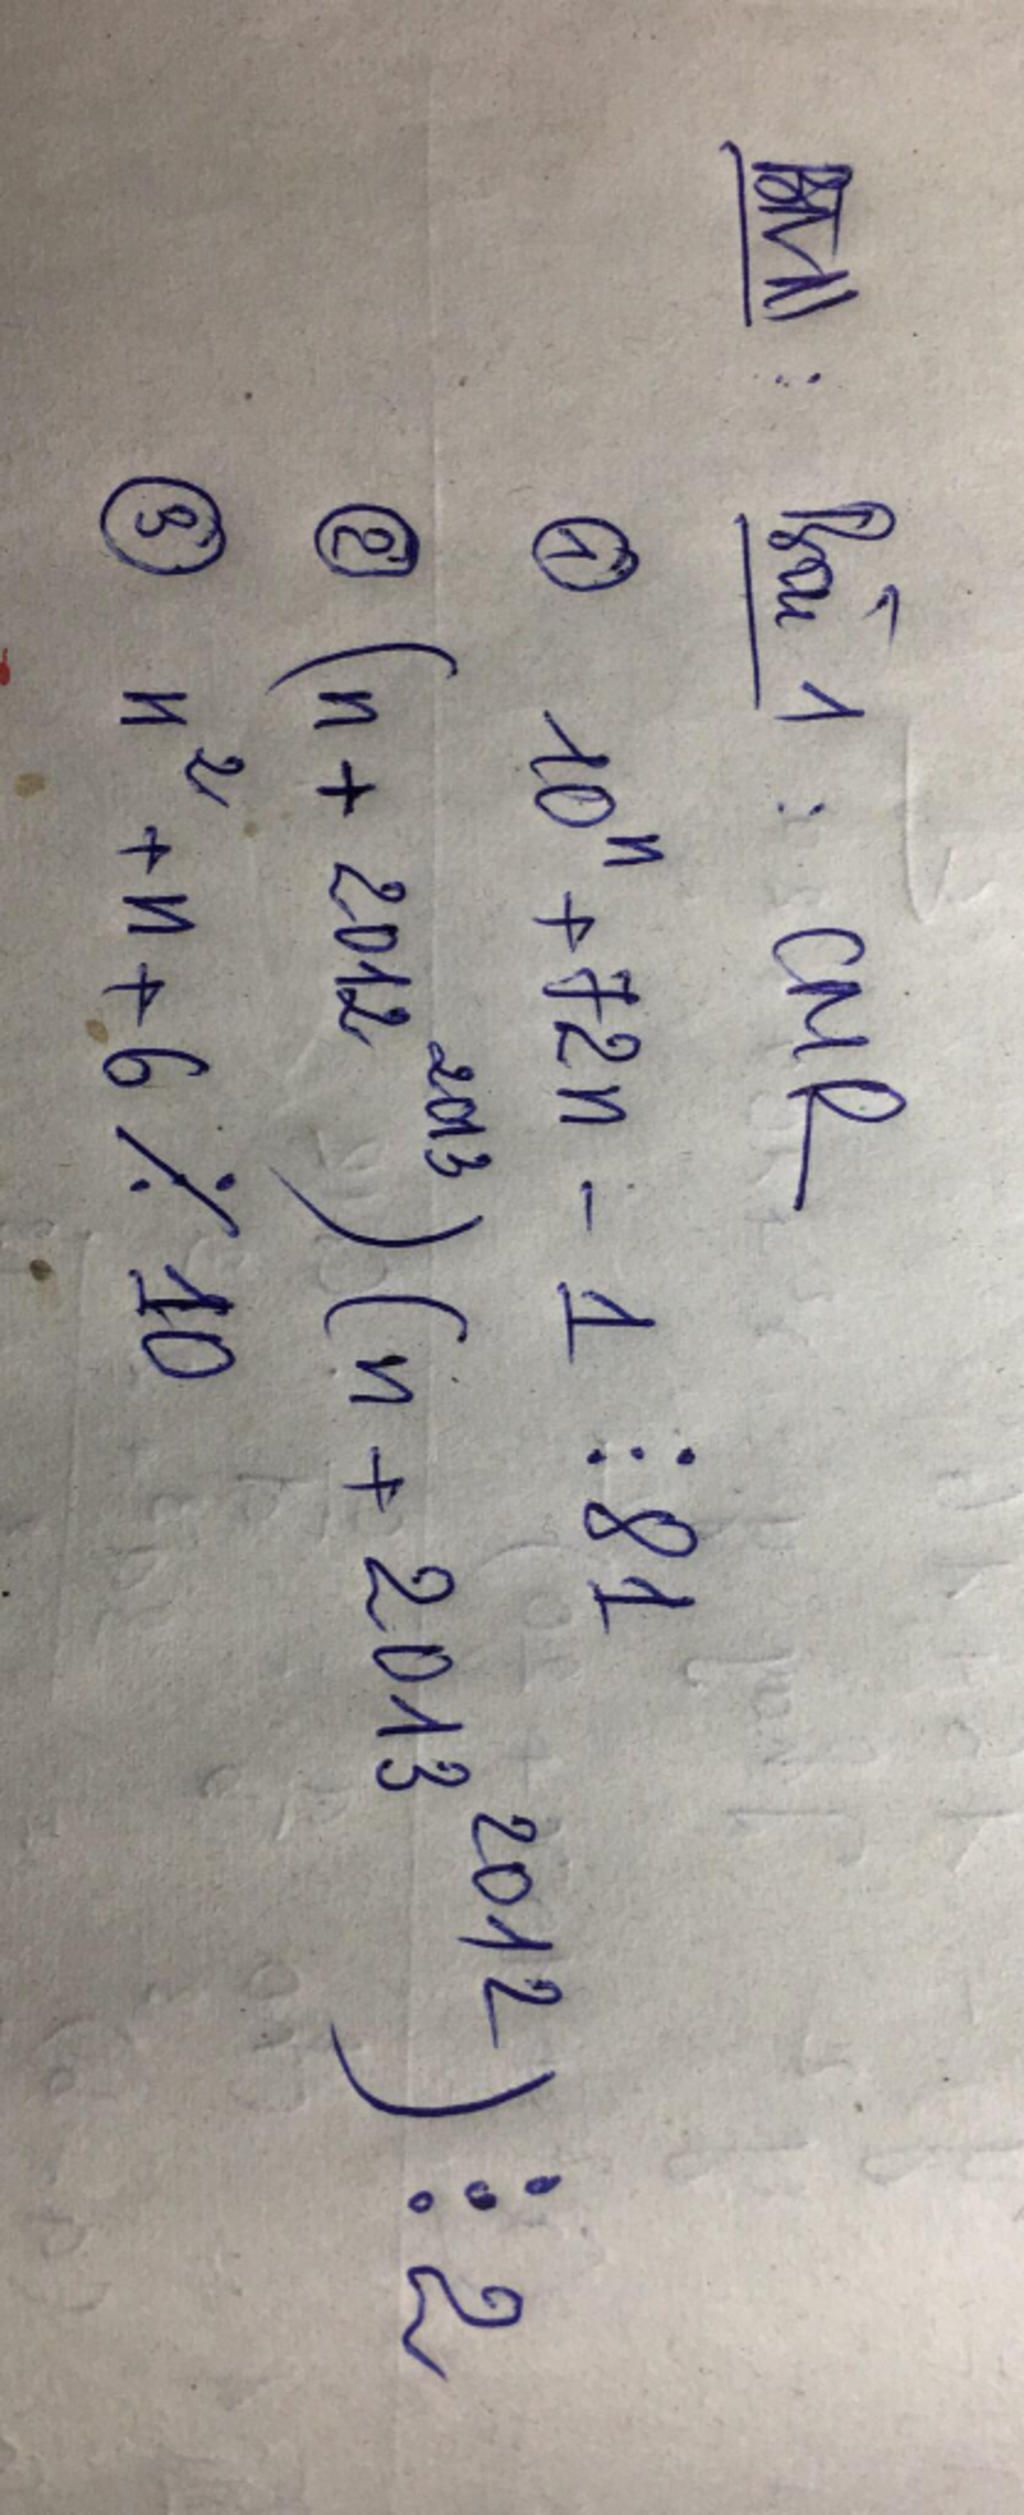 BTVN : Bài 1 : CMR
① 10ⁿ + 72n - 1 ⋮ 81
② (n + 2012²⁰¹³) (n + 2013²⁰¹²) ⋮ 2
③ n² + n + 6 ⋮̸ 10